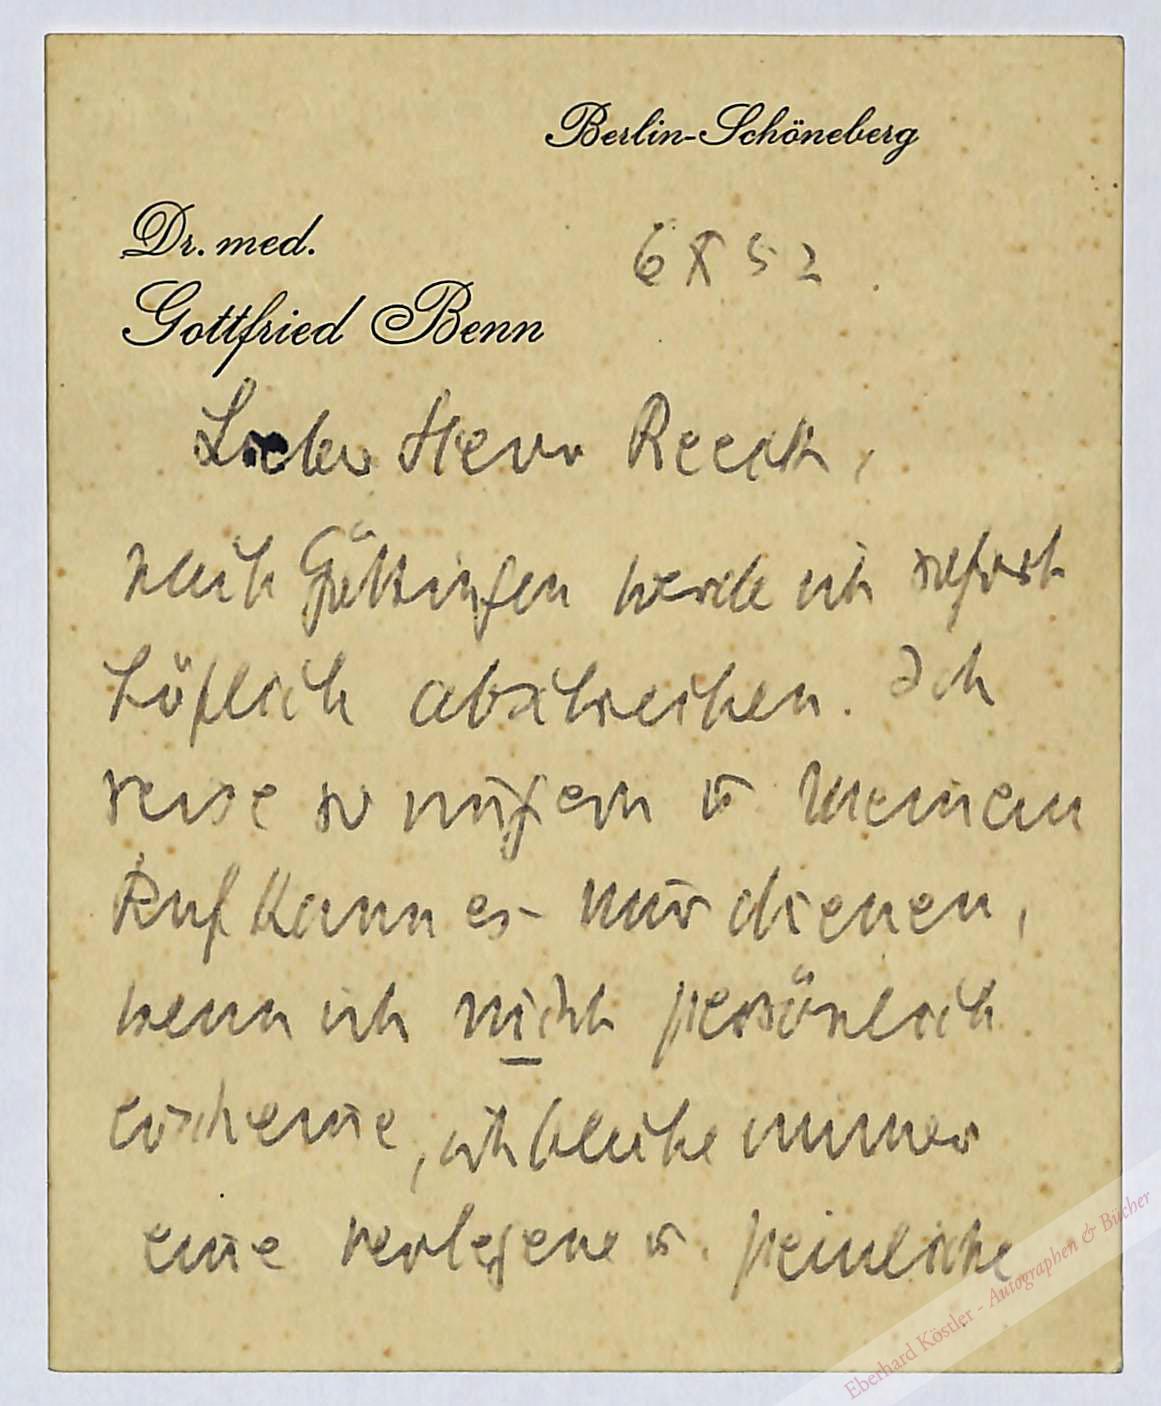 Berlin-Schöneberg
Dr. med.
6 X 52.
Gottfried Benn
Lieber Herr Reeck,
nach Göttingen werde ich sofort
höflich abschreiben. Ich
reise so ungern u meinem
Ruf kann es nur dienen,
wenn ich nicht persönlich
erscheine, ich bleibe immer
eine verlegene u. peinliche
Eberhard Köstler - Autographen & Bücher